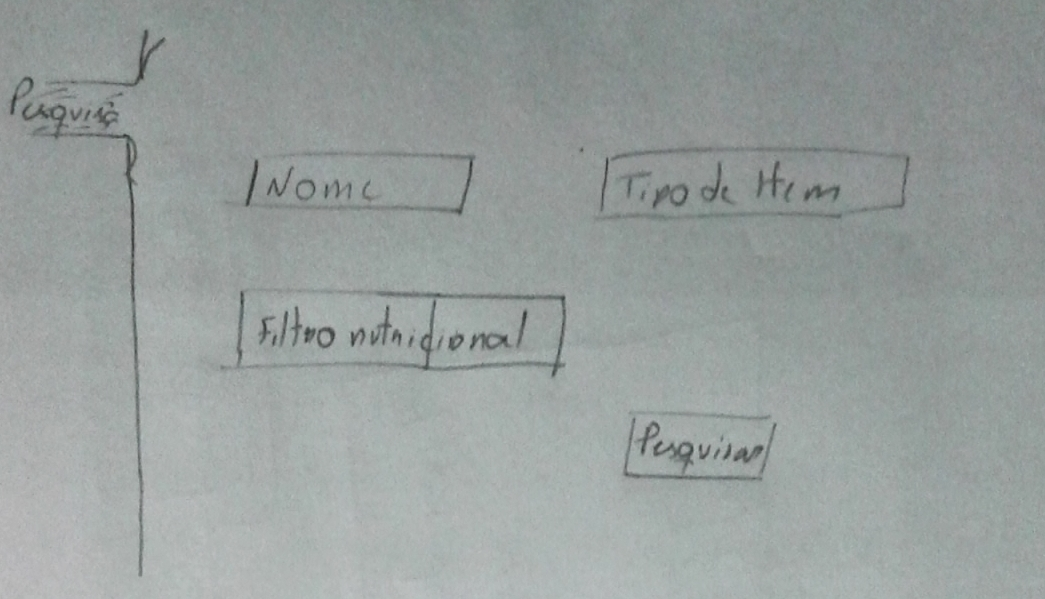 Pesquisa
Nome
Tipo de Item
Filtro nutricional
Pesquisar